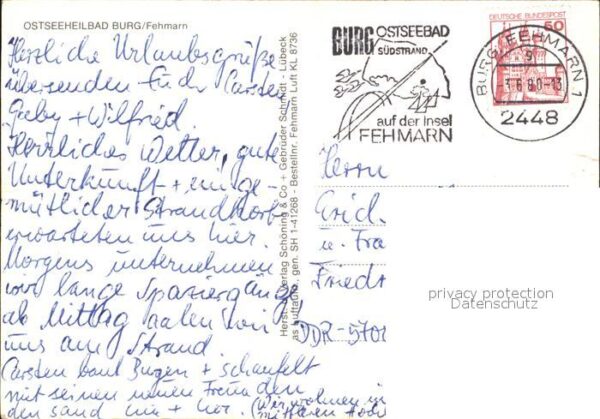 OSTSEEHEILBAD BURG/Fehmarn
Herzliche Urlaubsgrüße
übersenden Carsten
Gaby + Wilfried
Herrliches Wetter, gute
Unterkunft + ein ge-
mütlicher Strandkorb
erwarteten uns hier.
Morgens unternehmen
wir lange Spaziergänge
ab Mittag aalen wir
uns am Strand.
Carsten baut Burgen + schaufelt
mit seinen neuen Freunden
den Sand hin + her. (Wir wohnen in
Herst. Verlag Schöning & Co + Gebrüder Schmidt - Lübeck
gen. SH 1-41268 - Bestellnr. Fehmarn Luft KL 8736
BURG OSTSEEBAD
SÜDSTRAND
auf der Insel
FEHMARN
DEUTSCHE BUNDESPOST
50
BURG, FEHMARN 1
2448
Herrn
Erich
u. Fra
Friedr
DDR-5701
privacy protection
Datenschutz